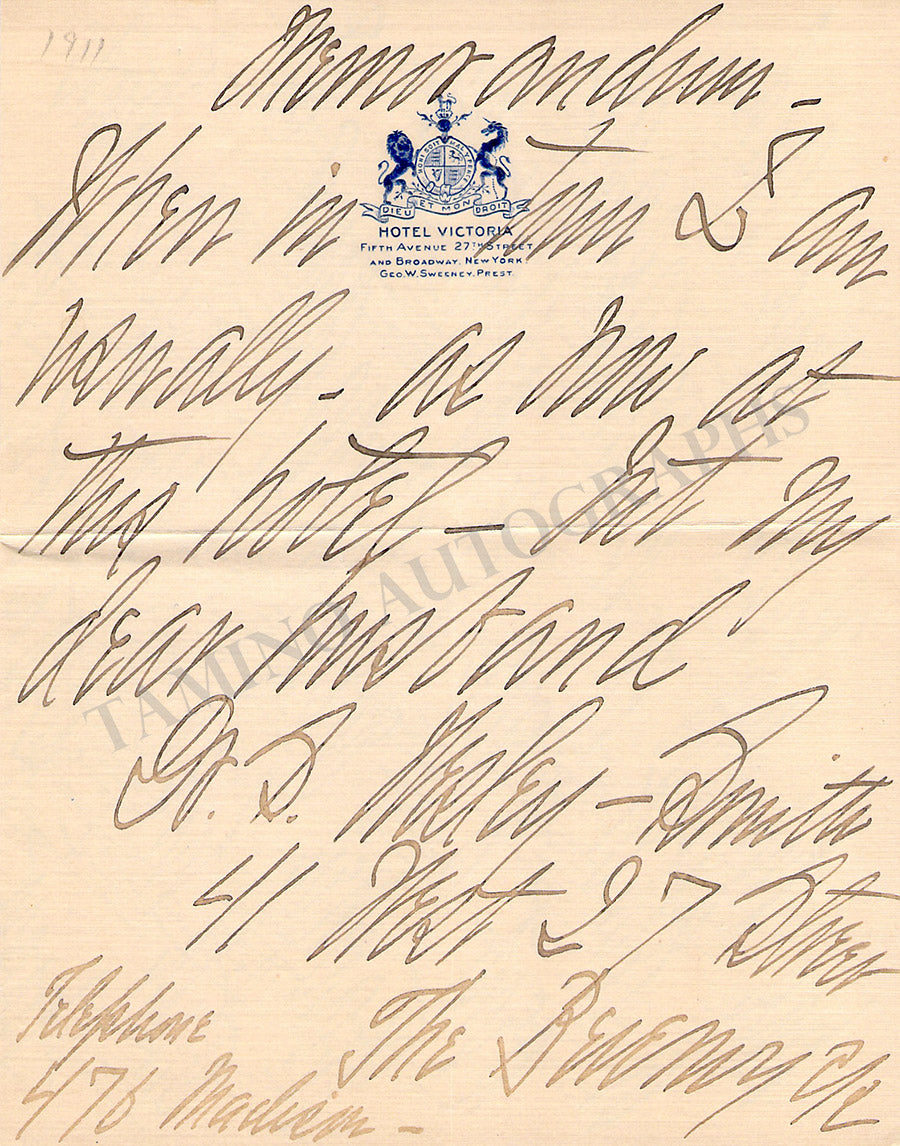 1911
Memorandum -
DIEU ET MON DROIT
HOTEL VICTORIA
FIFTH AVENUE 27TH STREET
AND BROADWAY, NEW YORK
GEO. W. SWEENEY, PREST.
When in Town I am
usually - as now at
this hotel - but my
dear husband
Dr. S. Wesley - Smith
41 West 27 Street
The Beverwyck
Telephone
476 Madison -
TAMINO AUTOGRAPHS